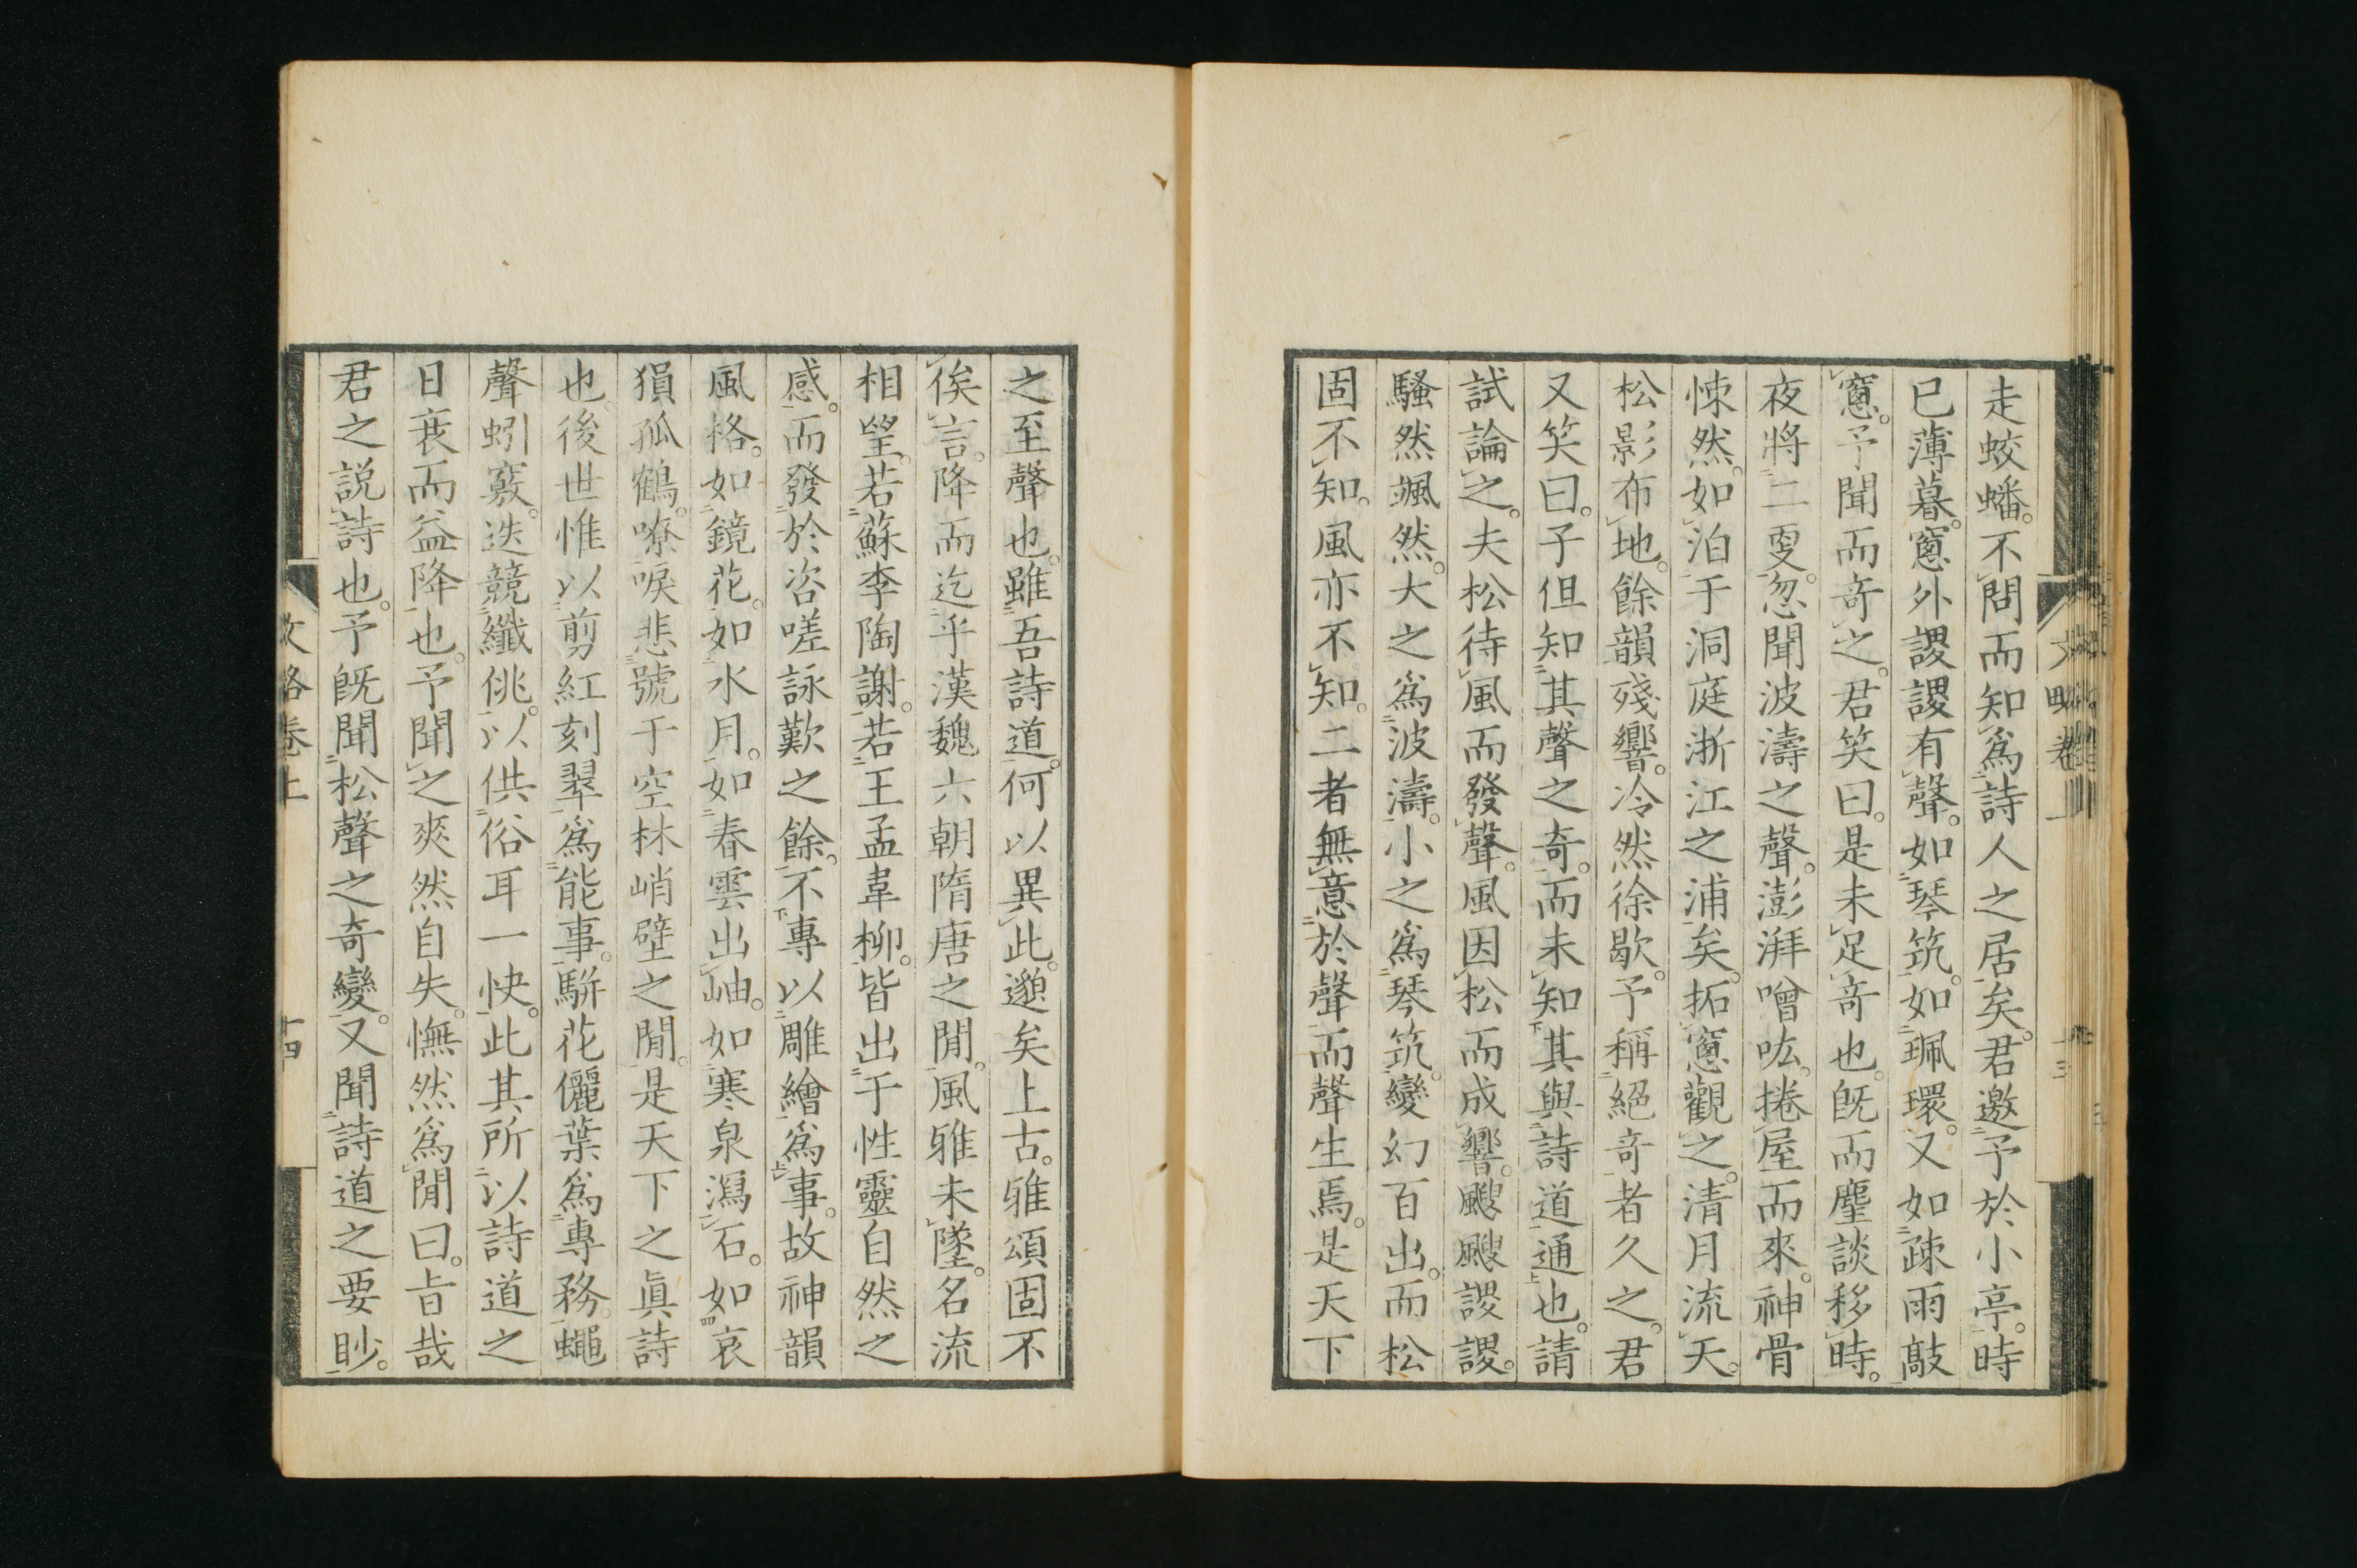 走蛟蟠。不問而知爲詩人之居矣。君邀予於小亭。時
已薄暮。窻外謖謖有聲。如琴筑。如珮環。又如疎雨敲
窻。予聞而奇之。君笑曰。是未足奇也。既而麈談移時。
夜將二更。忽聞波濤之聲。澎湃噌吰。捲屋而來。神骨
悚然。如泊于洞庭浙江之浦矣。拓窻觀之。清月流天。
松影布地。餘韻殘響。冷然徐歇。予稱絕奇者久之。君
又笑曰。子但知其聲之奇。而未知其與詩道通也。請
試論之。夫松待風而發聲。風因松而成響。颼颼謖謖。
騷然颯然。大之爲波濤。小之爲琴筑。變幻百出。而松
固不知。風亦不知。二者無意於聲。而聲生焉。是天下
文略卷上
十三
之至聲也。雖吾詩道。何以異此。邈矣上古。雅頌固不
俟言。降而迄乎漢魏六朝隋唐之閒。風雅未墜。名流
相望。若蘇李陶謝。若王孟韋柳。皆出于性靈自然之
感。而發於咨嗟詠歎之餘。不專以雕繪爲事。故神韻
風格。如鏡花。如水月。如春雲出岫。如寒泉瀉石。如哀
猿孤鶴。嘹唳悲號于空林峭壁之閒。是天下之眞詩
也。後世惟以剪紅刻翠爲能事。駢花儷葉爲專務。蠅
聲蚓竅。迭競纖佻。以供俗耳一快。此其所以詩道之
日衰而益降也。予聞之爽然自失。憮然爲閒曰。旨哉
君之説詩也。予既聞松聲之奇變。又聞詩道之要眇。
文略卷上
十四